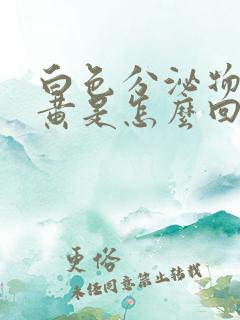 白色分泌物
黄是怎麽回
更俗
未经同意禁止转载